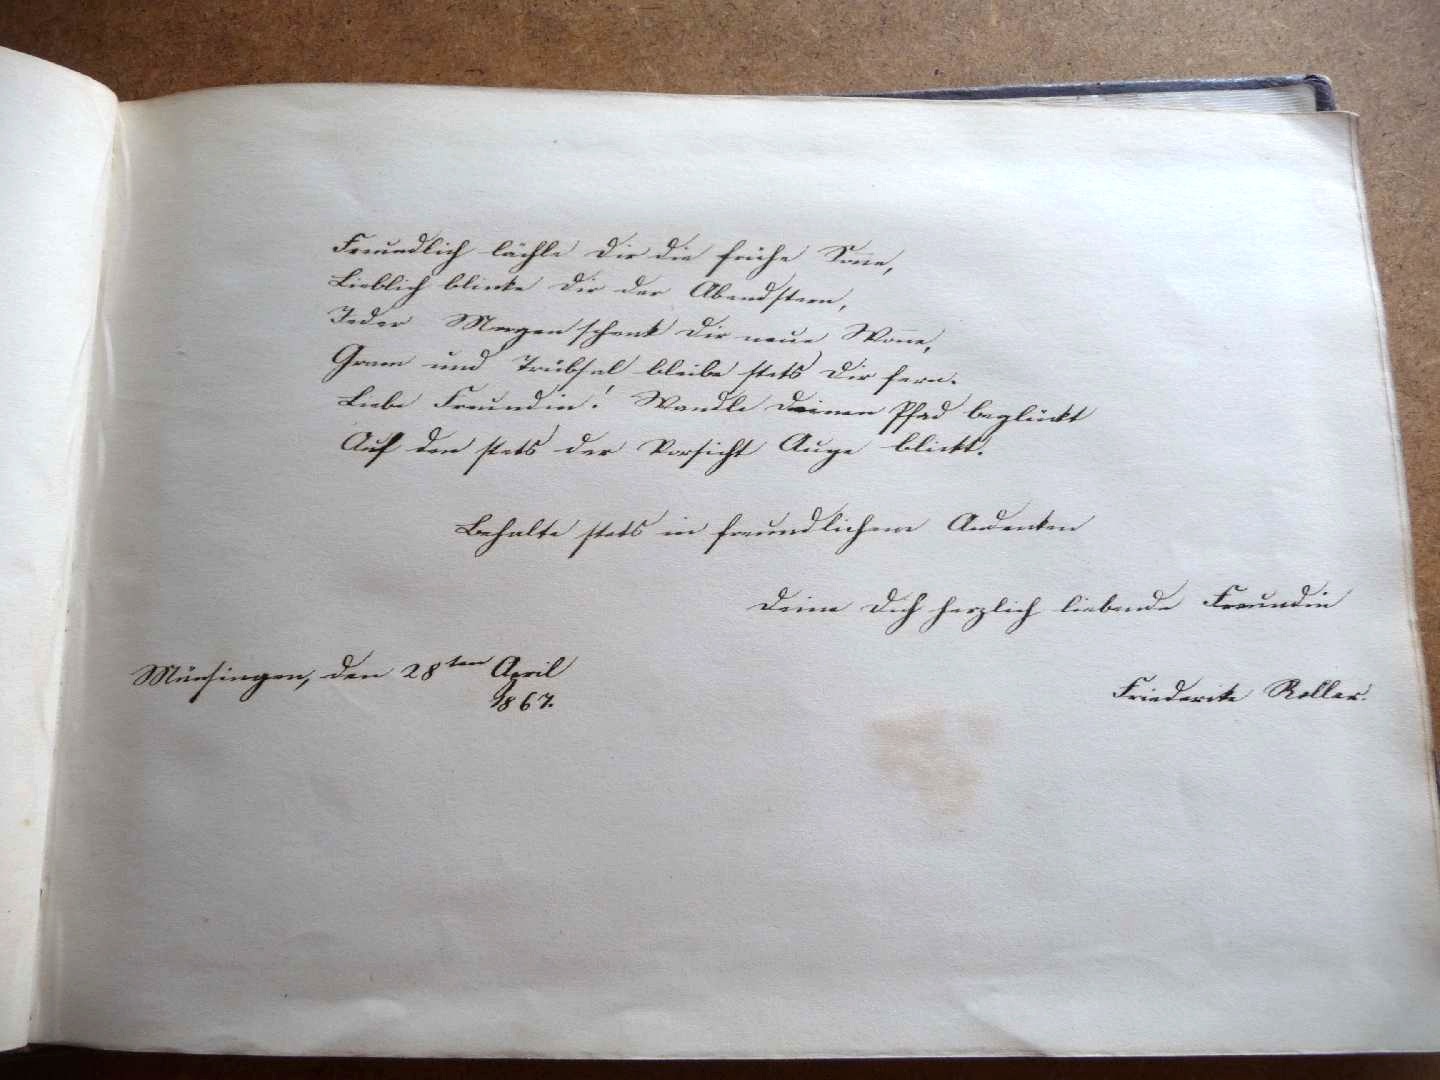 Freundlich lächle Dir die frühe Sonne,
Lieblich blinke Dir der Abendstern,
Jeder Morgen schenk Dir neue Wonne,
Gram und Trübsal bleibe stets Dir fern.
Liebe Freundin! Wandle Deinen Pfad beglückt
Auf den stets der Vorsicht Auge blickt.
Behalte stets in freundlichem Andenken
Deine Dich herzlich liebende Freundin
Münsingen, den 28ten April
1867.
Friederike Roller.